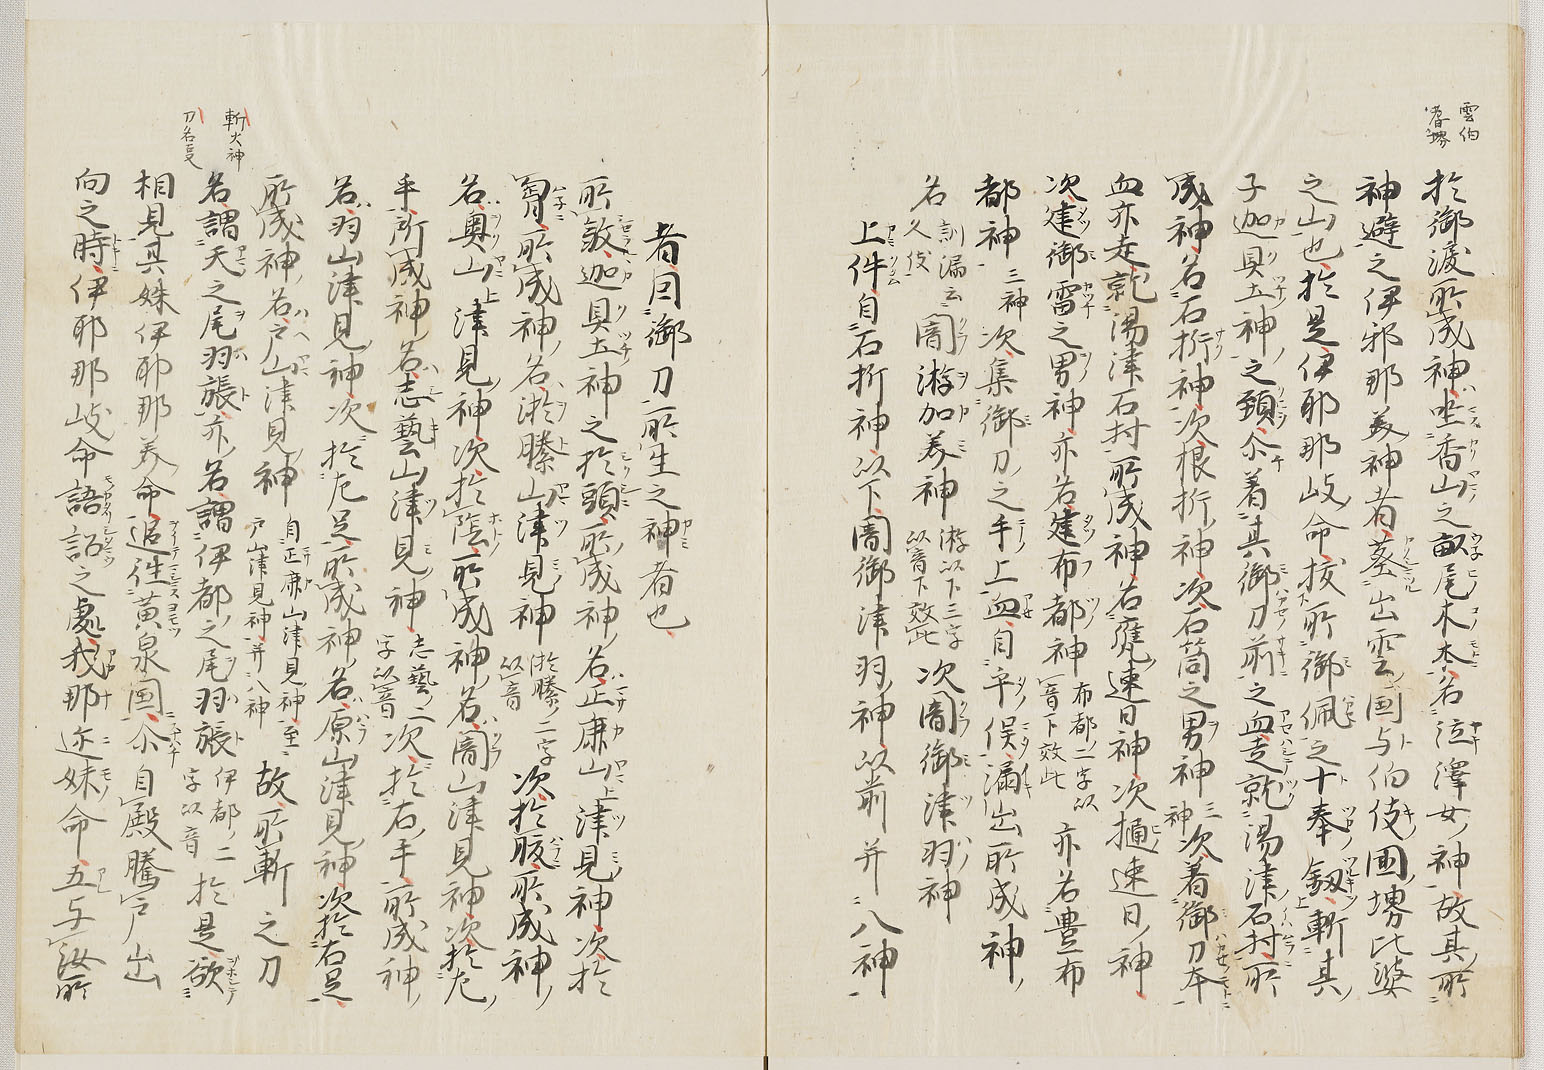 雲伯
耆堺
於御涙所成神坐香山之畝尾木本名泣澤女神故其所
神避之伊邪那美神者葬出雲国与伯伎國堺比婆
之山也於是伊耶那岐命抜所御佩之十拳釼斬其
子迦具土神之頚尒着其御刀前之血走就湯津石村所
成神名石折神次根折神次石筒之男神三神次着御刀本
血亦走就湯津石村所成神名甕速日神次樋速日神
次建御雷之男神亦名建布都神布都二字以音下效此亦名豊布
都神三神次集御刀之手上血自手俣漏出所成神
名訓漏云久伎闇淤加美神淤以下三字以音下效此次闇御津羽神
上件自石折神以下闇御津羽神以前并八神
者因御刀所生之神者也
所敘迦具土神之於頭所成神名正鹿山上津見神次於
胷所成神名淤縢山津見神淤縢二字以音次於腹所成神
名奥山上津見神次於陰所成神名闇山津見神次於左
手所成神名志藝山津見神志藝二字以音次於右手所成神
名羽山津見神次於左足所成神名原山津見神次於右足
所成神名戸山津見神自正鹿山津見神至戸山津見神并八神故所斬之刀
斬火神
刀名㕝
名謂天之尾羽張亦名謂伊都之尾羽張伊都二字以音於是欲
相見其妹伊耶那美命追往黄泉国尒自殿騰戸出
向之時伊耶那岐命語詔之愛我那迩妹命吾与汝所